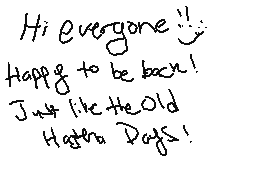 Hi everyone!!
Happy to be back!
Just like the Old
Hatena Days!